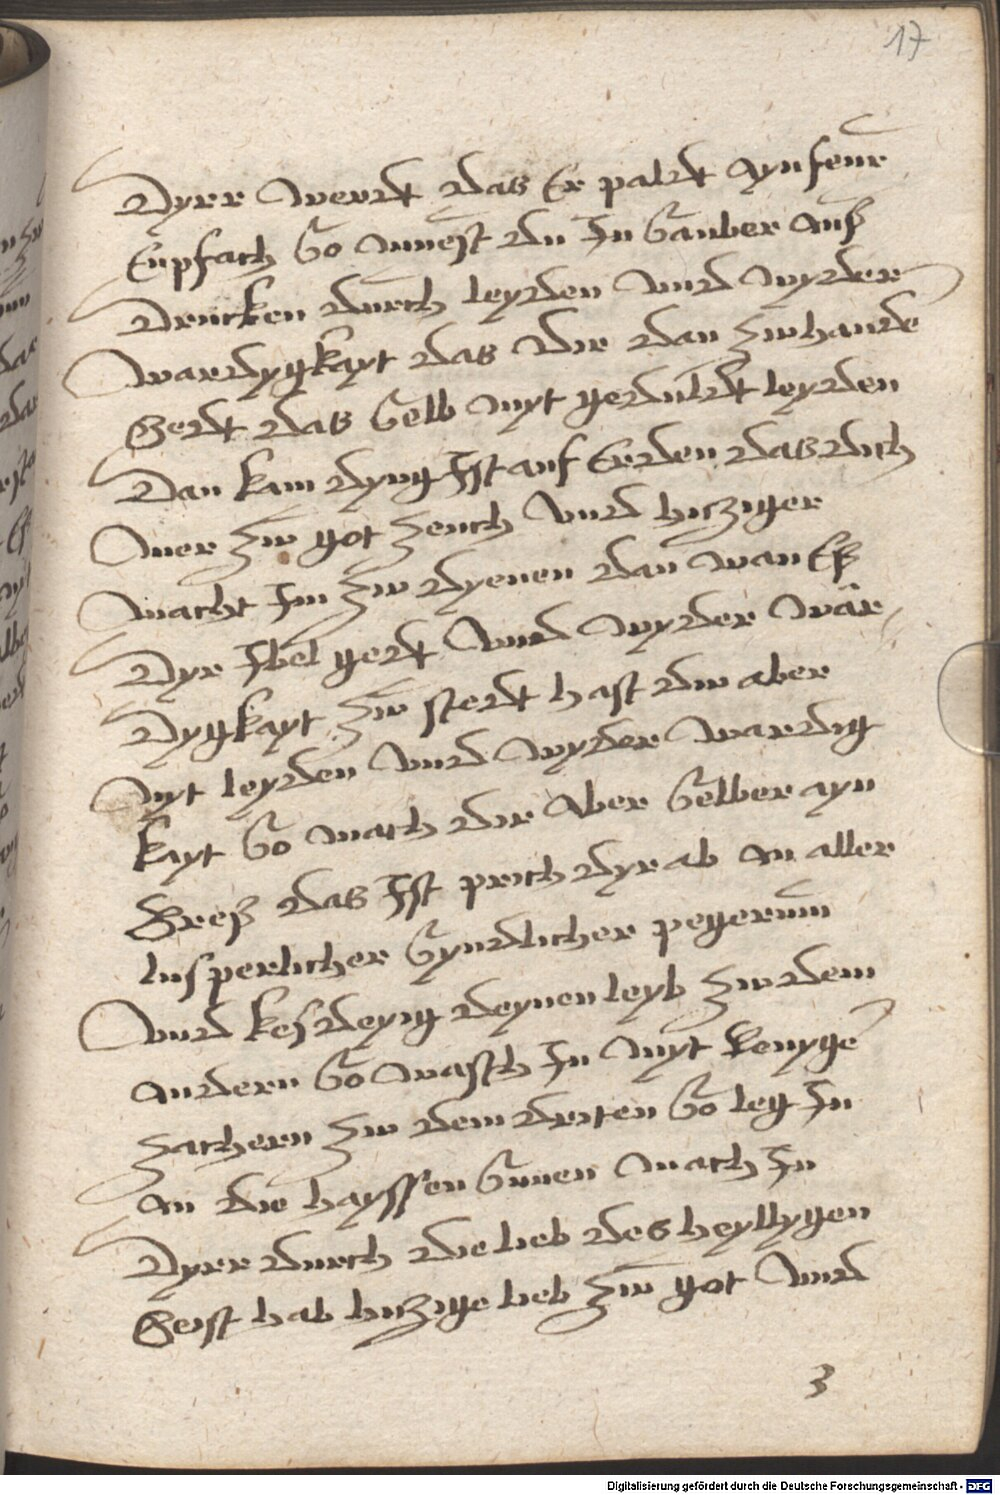 17
Dyrr werdt das Er paldt ayn feur
Enpfach So muest du In Sauber auß
Drucken durch leyden vnd wyder
wardygkayt das dir dan zw hande
Gedt das Selb myt geduldt leyden
Dan kain dyng Ist auf Erden das dich
mer zw got zeuch vnd hicziger
macht Im zw dyenen dan wan Eß
Dyr Ibel gedt vnd wyder wär
Dygkayt zw stedt hast du aber
nyt leyden vnd wyder wardig
kayt So mach dir aber Selber ayn
Greß das Ist prich dyr ab an aller
lusperlicher Syndlicher pegerum
vnd kesdeyig deynen leyb zw dem
andern So wasch In myt Renyge
Zachern zw dem driten So leg In
an die hayssen Sunen mach In
Dyrr durch die lieb des heyllygen
Geist hab hiczige lieb zw got vnd
3
Digitalisierung gefördert durch die Deutsche Forschungsgemeinschaft - DFG